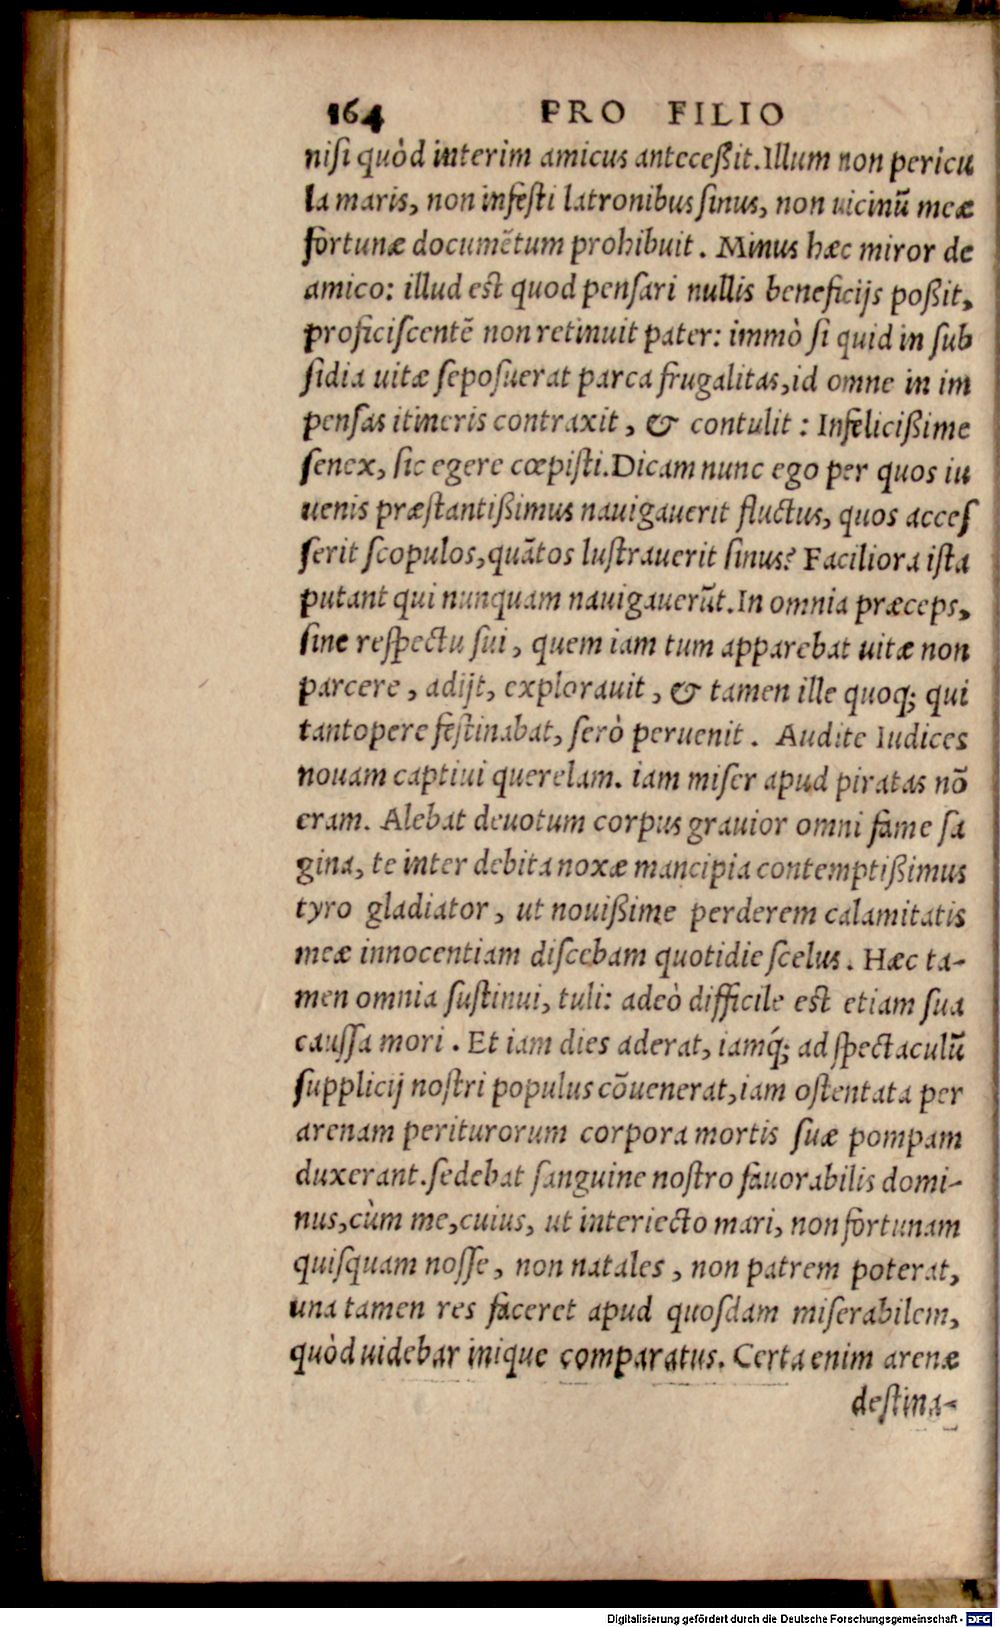 164 PRO FILIO
nisi quòd interim amicus anteceßit. Illum non pericu
la maris, non infesti latronibus sinus, non uicinũ meæ
fortunæ documẽtum prohibuit. Minus hæc miror de
amico: illud est quod pensari nullis beneficijs poßit,
proficiscentẽ non retinuit pater: immò si quid in sub
sidia uitæ seposuerat parca frugalitas, id omne in im
pensas itineris contraxit, & contulit: Infelicißime
senex, sic egere cœpisti. Dicam nunc ego per quos iu
uenis præstantißimus nauigauerit fluctus, quos acces
serit scopulos, quãtos lustrauerit sinus? Faciliora ista
putant qui nunquam nauigauerũt. In omnia præceps,
sine respectu sui, quem iam tum apparebat uitæ non
parcere, adijt, explorauit, & tamen ille quoq; qui
tantopere festinabat, serò peruenit. Audite Iudices
nouam captiui querelam. iam miser apud piratas nõ
eram. Alebat deuotum corpus grauior omni fame sa
gina, te inter debita noxæ mancipia contemptißimus
tyro gladiator, ut nouißime perderem calamitatis
meæ innocentiam discebam quotidie scelus. Hæc ta-
men omnia sustinui, tuli: adeò difficile est etiam sua
caussa mori. Et iam dies aderat, iamq́; ad spectaculũ
supplicij nostri populus cõuenerat, iam ostentata per
arenam periturorum corpora mortis suæ pompam
duxerant. sedebat sanguine nostro fauorabilis domi-
nus, cùm me, cuius, ut interiecto mari, non fortunam
quisquam nosse, non natales, non patrem poterat,
una tamen res faceret apud quosdam miserabilem,
quòd uidebar inique comparatus. Certa enim arenæ
destina-
Digitalisierung gefördert durch die Deutsche Forschungsgemeinschaft - DFG